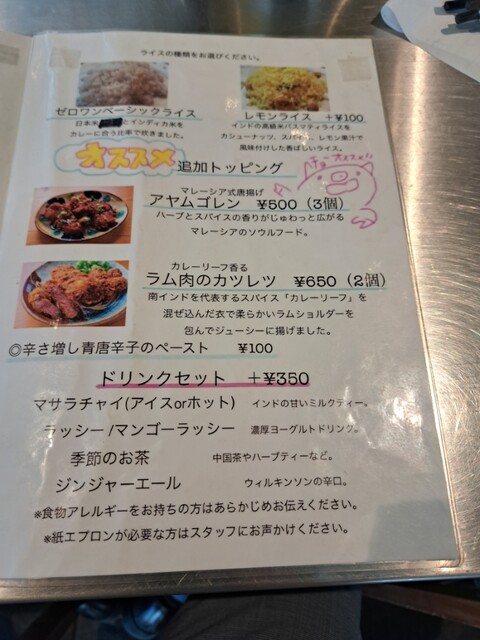 ライスの種類をお選びください。
ゼロワンベーシックライス
日本米とインディカ米を
カレーに合う比率で炊きました。
レモンライス +¥100
インドの高級米バスマティライスを
カシューナッツ、スパイス、レモン果汁で
風味付けした香ばしいライス。
オススメ 追加トッピング
チョーオススメ!
マレーシア式唐揚げ
アヤムゴレン ¥500（3個）
ハーブとスパイスの香りがじゅわっと広がる
マレーシアのソウルフード。
カレーリーフ香る
ラム肉のカツレツ ¥650（2個）
南インドを代表するスパイス「カレーリーフ」を
混ぜ込んだ衣で柔らかいラムショルダーを
包んでジューシーに揚げました。
◎辛さ増し青唐辛子のペースト ¥100
ドリンクセット +¥350
マサラチャイ(アイスorホット) インドの甘いミルクティー。
ラッシー/マンゴーラッシー 濃厚ヨーグルトドリンク。
季節のお茶 中国茶やハーブティーなど。
ジンジャーエール ウィルキンソンの辛口。
※食物アレルギーをお持ちの方はあらかじめお伝えください。
※紙エプロンが必要な方はスタッフにお声かけください。